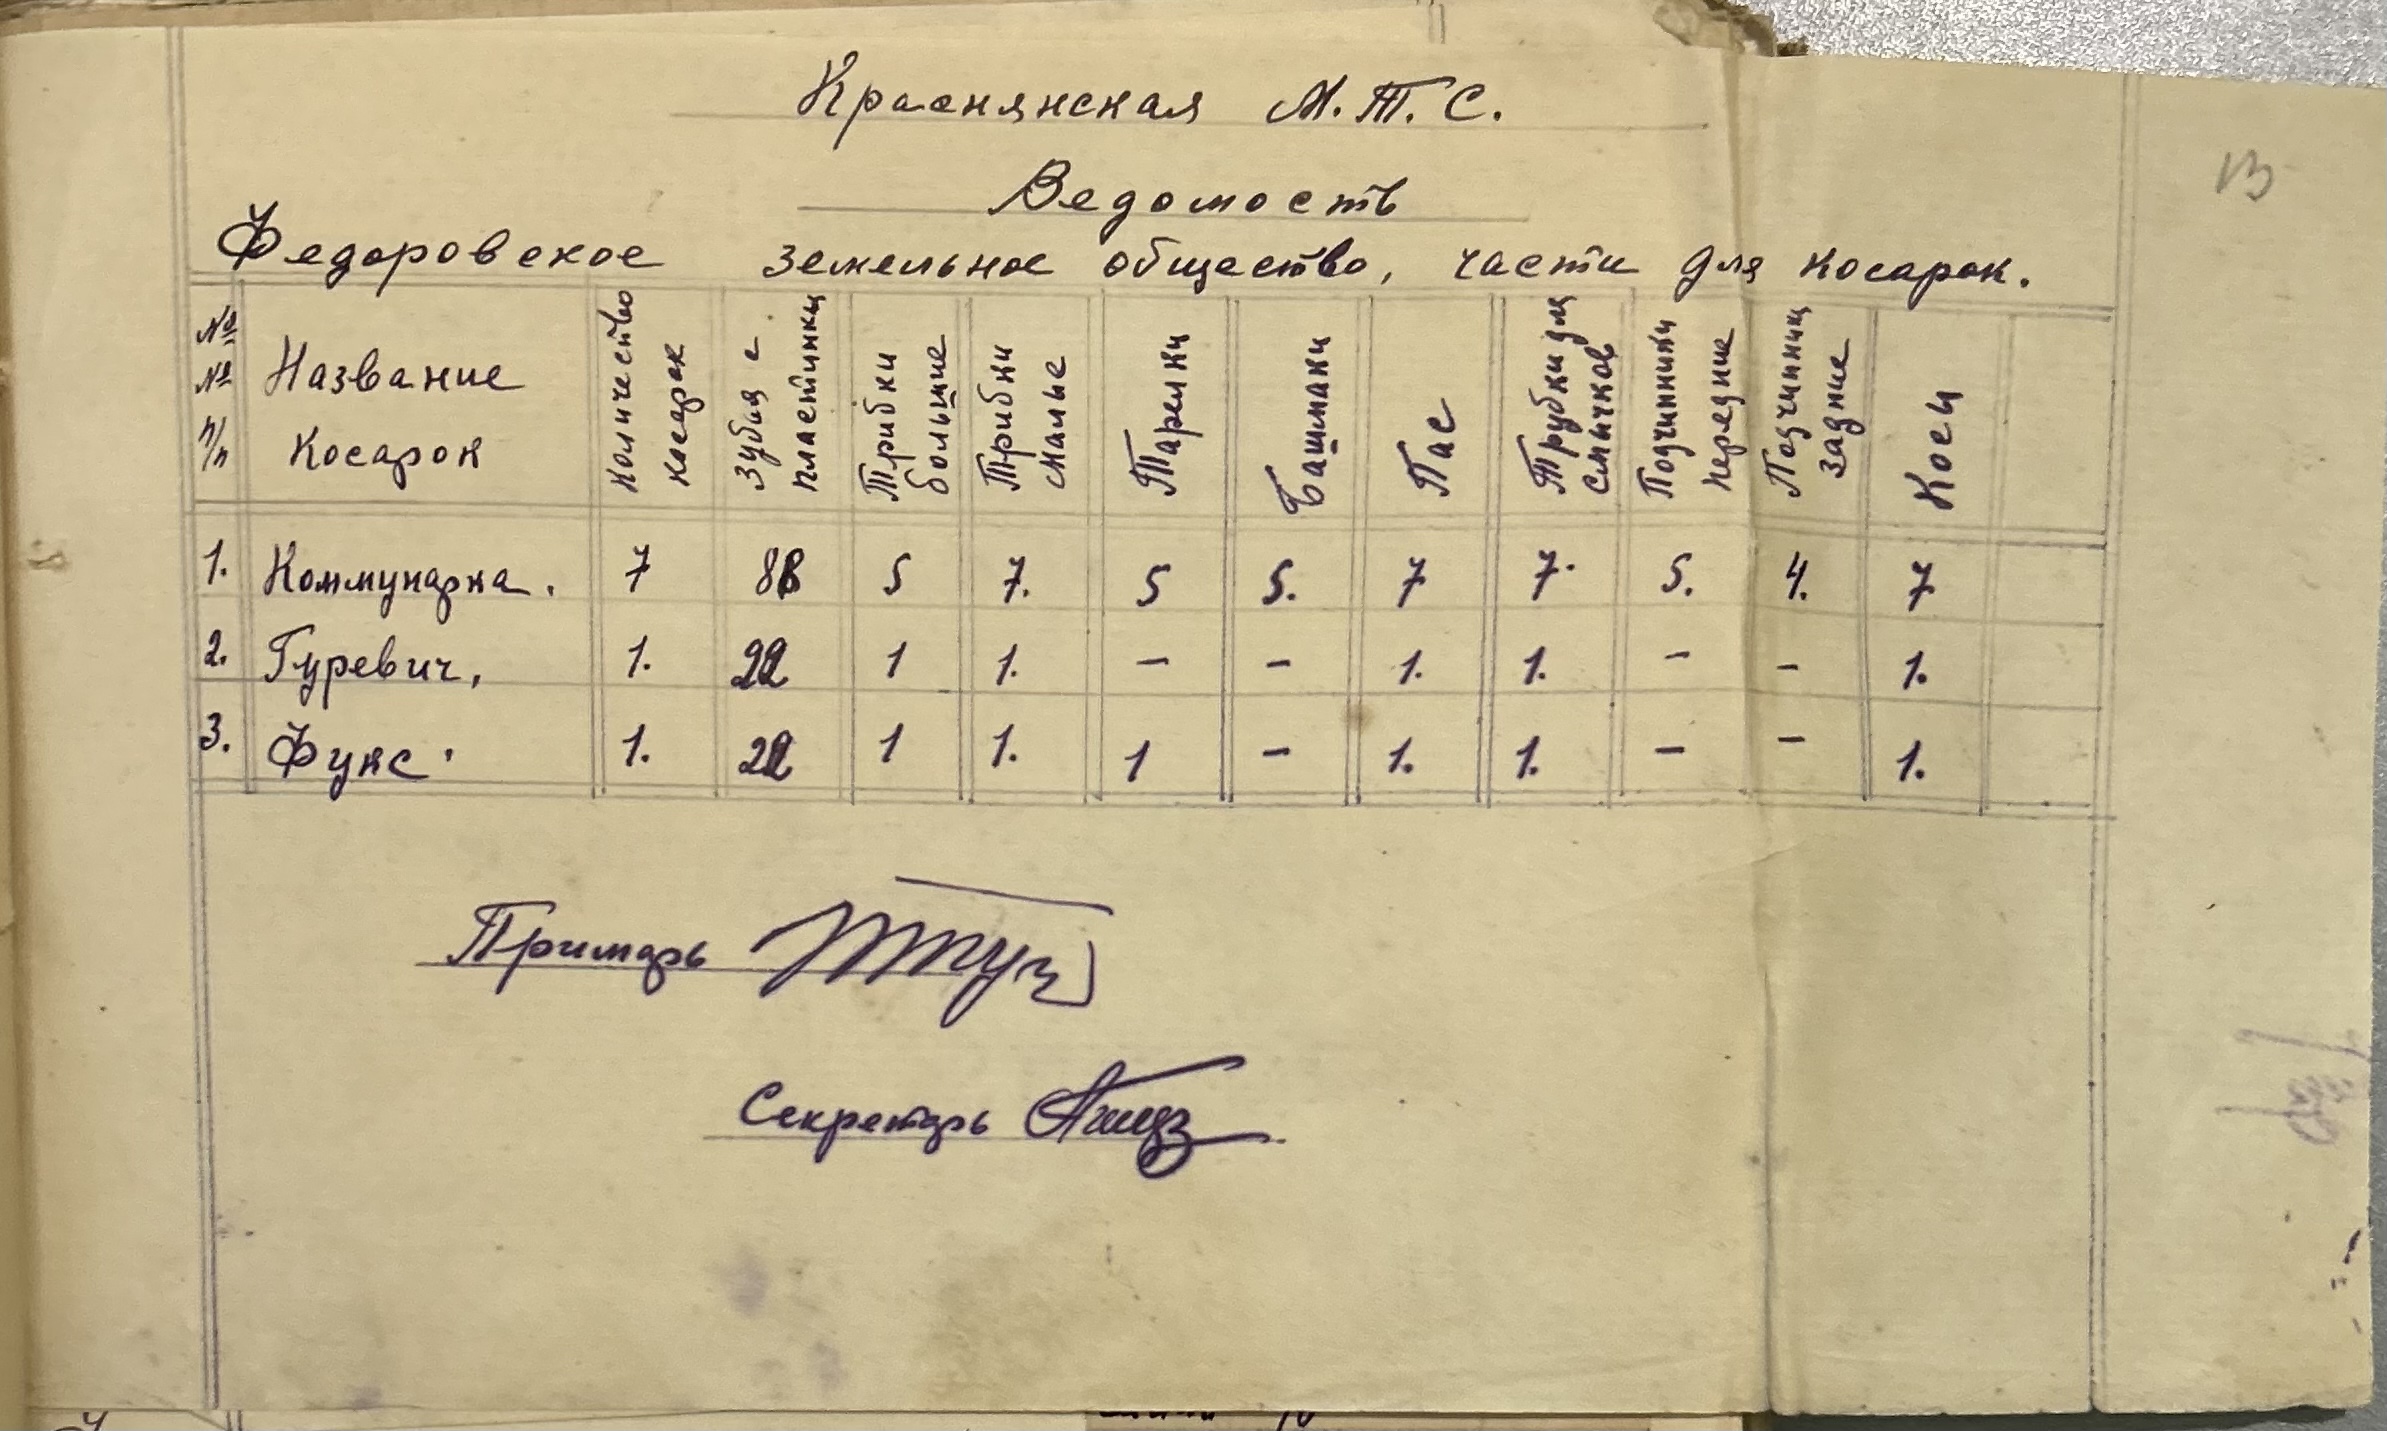 13
Краснянская М.Т.С.
Ведомость
Федоровское земельное общество, части для косарок.
№ № п/п Название косарок Количество косарок Зубья с пластинки Трибки большие Трибки малые Тарелки Башмаки Пас Трубки для смычков Подчинники передние Подчинник задние Косы
1. Коммунарка. 7 88 5 7. 5 5. 7 7. 5. 4. 7
2. Гуревич. 1. 22 1 1. – – 1. 1. – – 1.
3. Фукс. 1. 22 1 1. 1 – 1. 1. – – 1.
Примарь
Секретарь